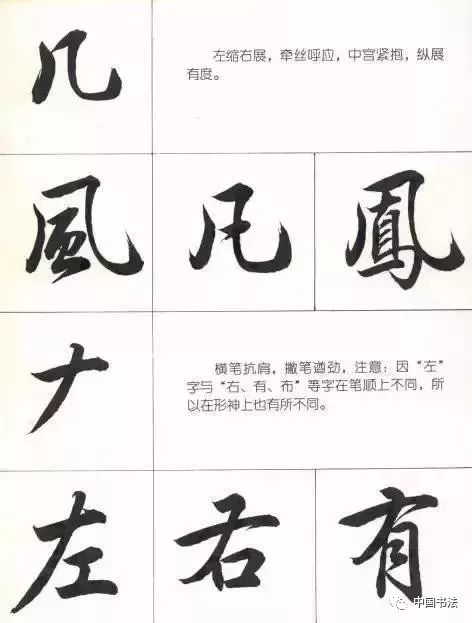 几
左缩右展，牵丝呼应，中宫紧抱，纵展
有度。
風 凡 鳳
𠂇
横笔抗肩，撇笔遒劲，注意：因“左”
字与“右、有、布”等字在笔顺上不同，所
以在形神上也有所不同。
左 右 有
中国书法